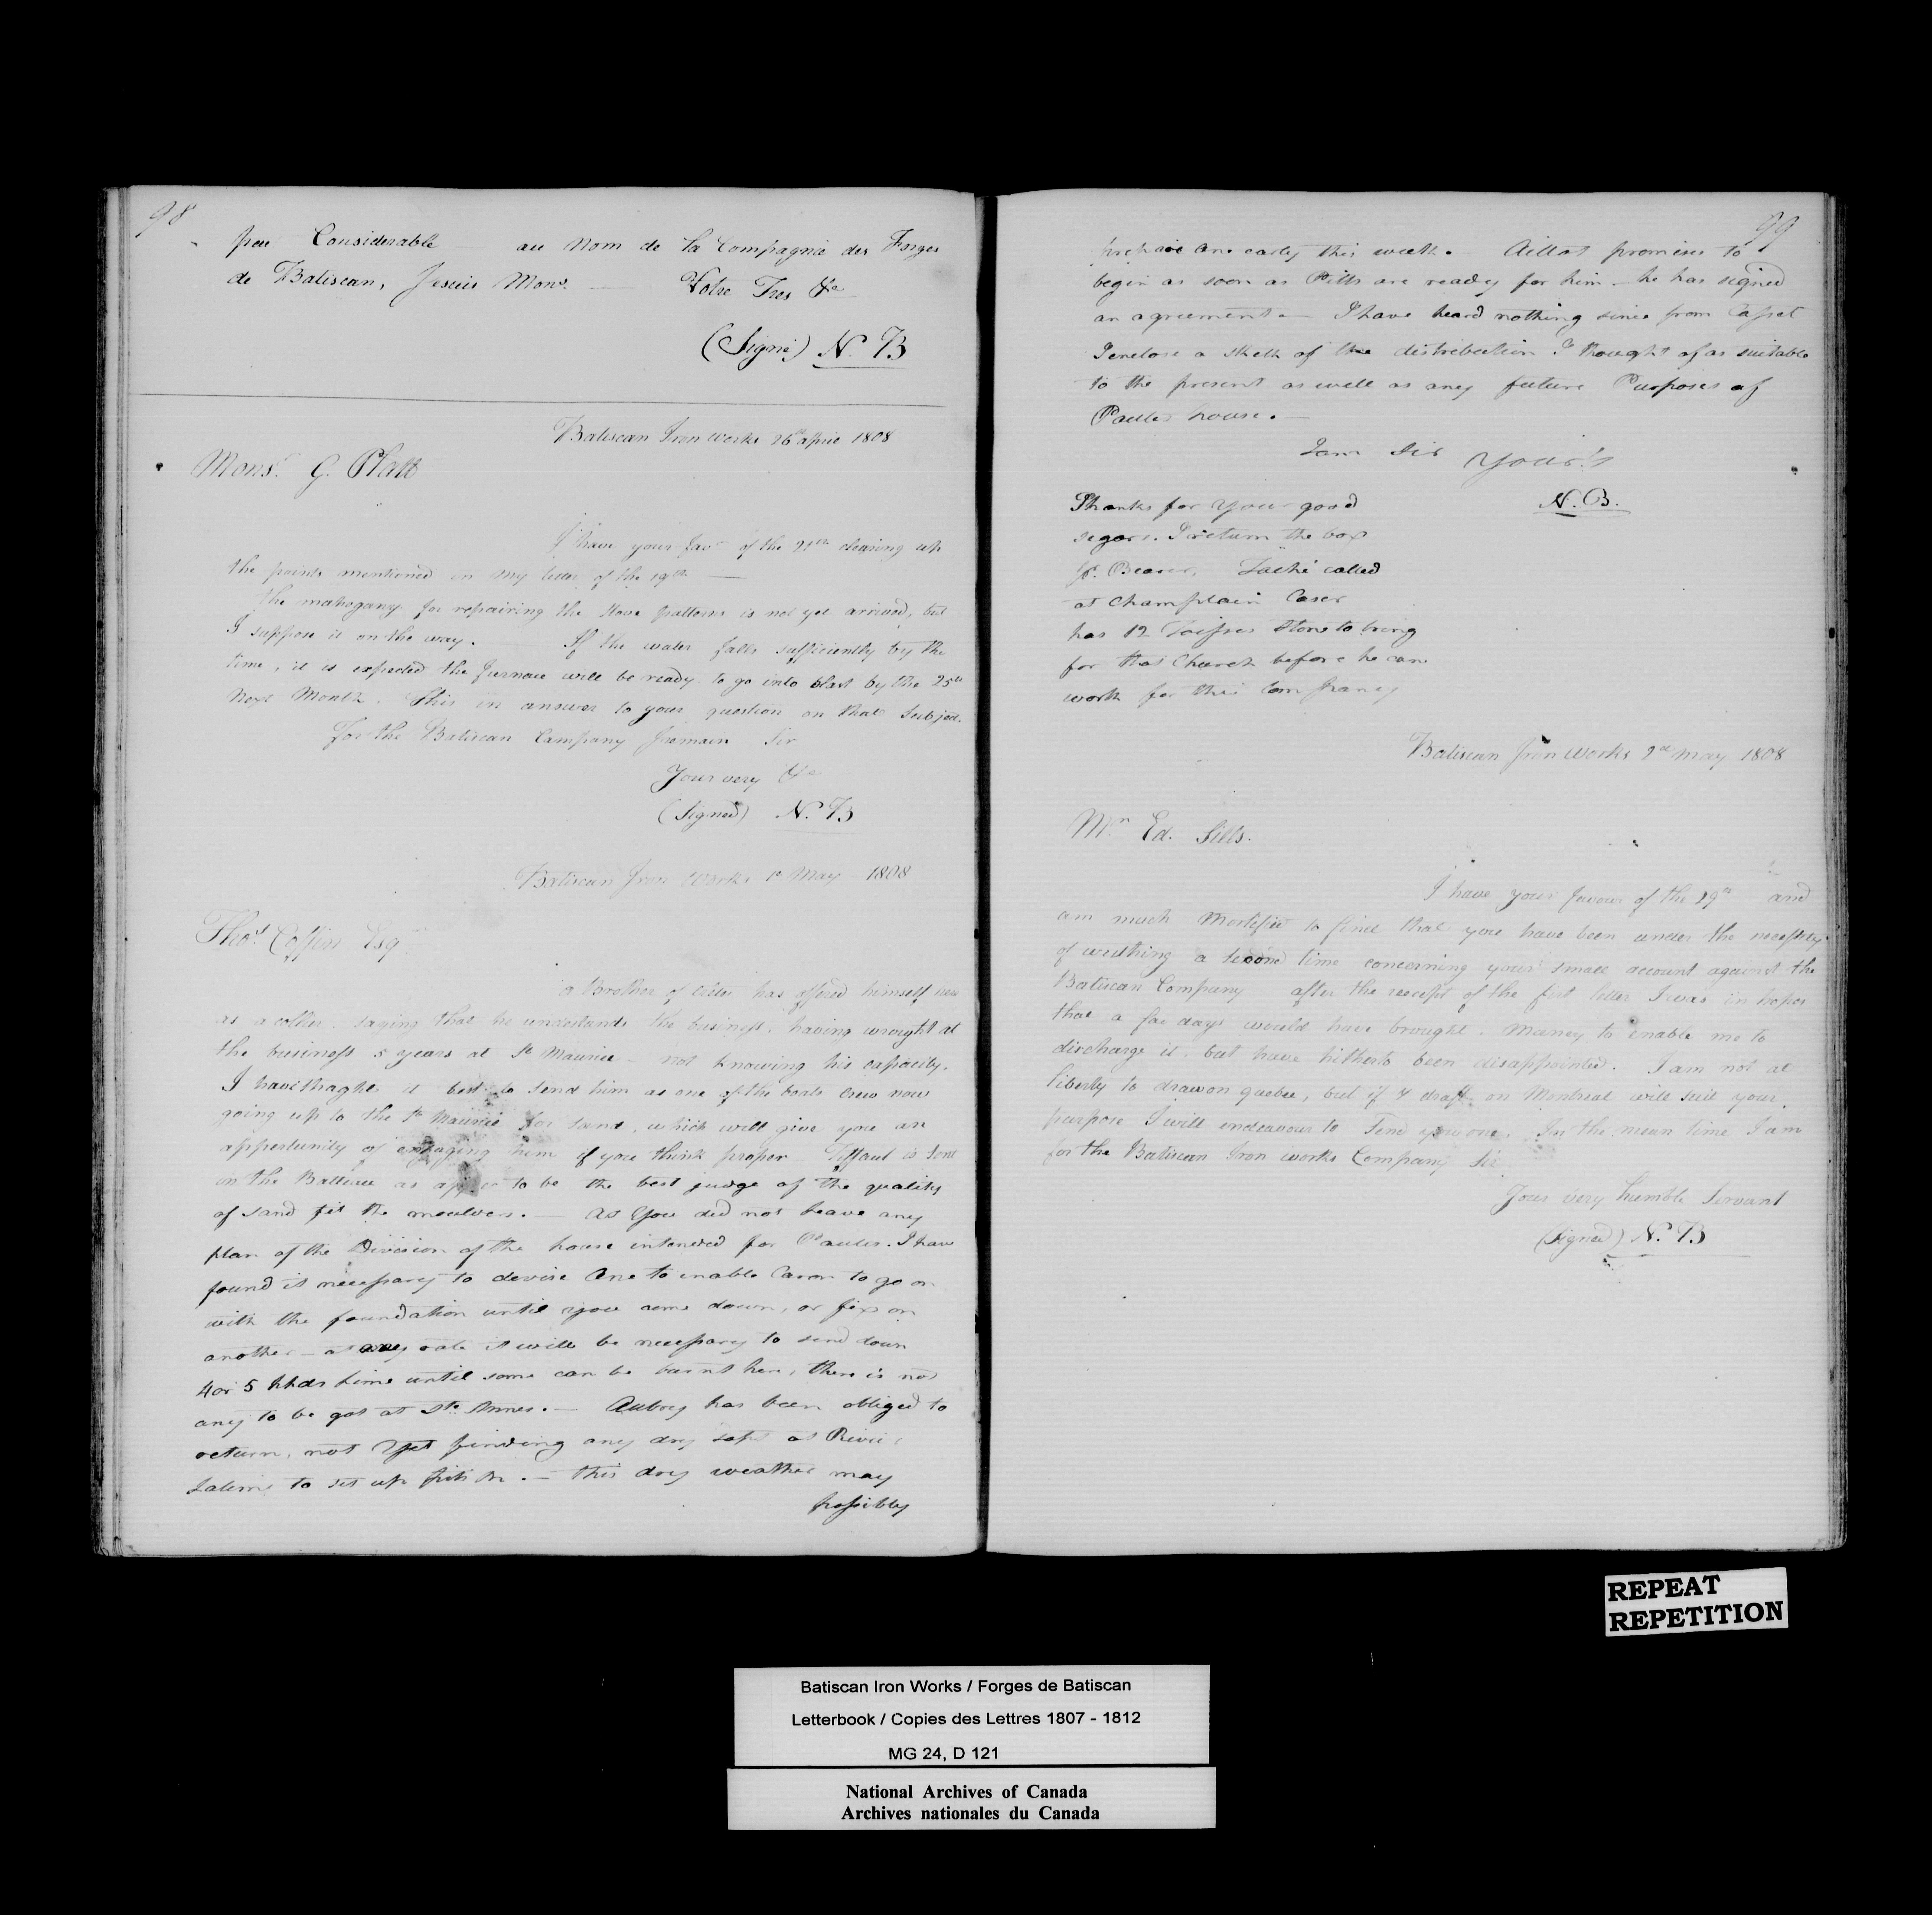 98
peu Considerable — au Nom de la Compagnie des Forges
de Batiscan, Jesuis Monsr. — Votre Tres &a
(Signé) N. B
Batiscan Iron Works 26th april 1808
Monsr. G. Platt
I have your favr of the 21th clearing up
the points mentioned in my letter of the 19th —
the mahogany for repairing the stove patterns is not yet arrived, but
I suppose it on the way. — If the water falls sufficiently by the
time, it is expected the furnace will be ready to go into blast by the 25th
Next Month. This in answer to your question on that Subject.
For the Batiscan Company Iremain Sir
Your very &a
(Signed) N. B
Batiscan Iron Works 1t May 1808
Thos. Coffin Esqr
a Brother of has offered himself
as a collier saying that he understands the business, having wrought at
the business 5 years at St Maurice — not knowing his capacity.
I havethoght it best to send him as one of the boats crew now
going up to the St Maurice for sand, which will give you an
oppertunity of engaging him if you think proper — Tiffaut is sent
in the Batteau as to be the best judge of the quality
of sand fit the moulders. — as you did not leave any
plan of the Division of the house intended for Paules. I have
found it necessary to devise One to enable Caron to go on
with the foundation until you come down, or fix on
another — at any rate it will be necessary to send down
4 or 5 hhds Lime until some can be burnt here, there is not
any to be got at Ste Annes. — Aubrey has been obliged to
return, not yet finding any dry at Rivie
to set up pits in. — this dry weather may
possibly
99
prepare one early this week. — Aillot promises to
begin as soon as Pitts are ready for him — he has signed
an agreement — I have heard nothing since from Casset
I enclose a sketh of the distribution I thought of as suitable
to the present as well as any future Purposes of
Paules house. —
I am Sir Your's
N. B.
Thanks for your good
segars. I return the box
pr. Bearer, Taché called
at Champlain Caser
has 12 Toises Stone to bring
for that Church before he can
work for this Company
Batiscan Iron Works 2d May 1808
Mr Ed. Sills.
I have your favour of the 29th and
am much Mortified to find that you have been under the necessity
of writhing a second time concerning your small account against the
Batiscan Company — after the receipt of the first letter I was in hopes
that a few days would have brought Money to enable me to
discharge it, but have hitherto been disappointed. I am not at
liberty to drawon quebec, but if a draft on Montreal will suit your
purpose I will endeavour to Send you one. In the mean time I am
for the Batiscan Iron works Company Sir
Your very humble Servant
(Signed) N. B
REPEAT
REPETITION
Batiscan Iron Works / Forges de Batiscan
Letterbook / Copies des Lettres 1807 - 1812
MG 24, D 121
National Archives of Canada
Archives nationales du Canada